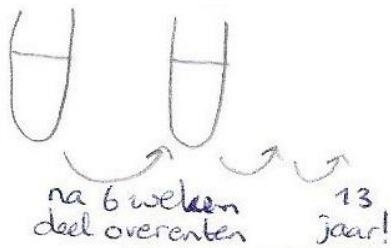 na 6 weken 13
deel overenten jaar!